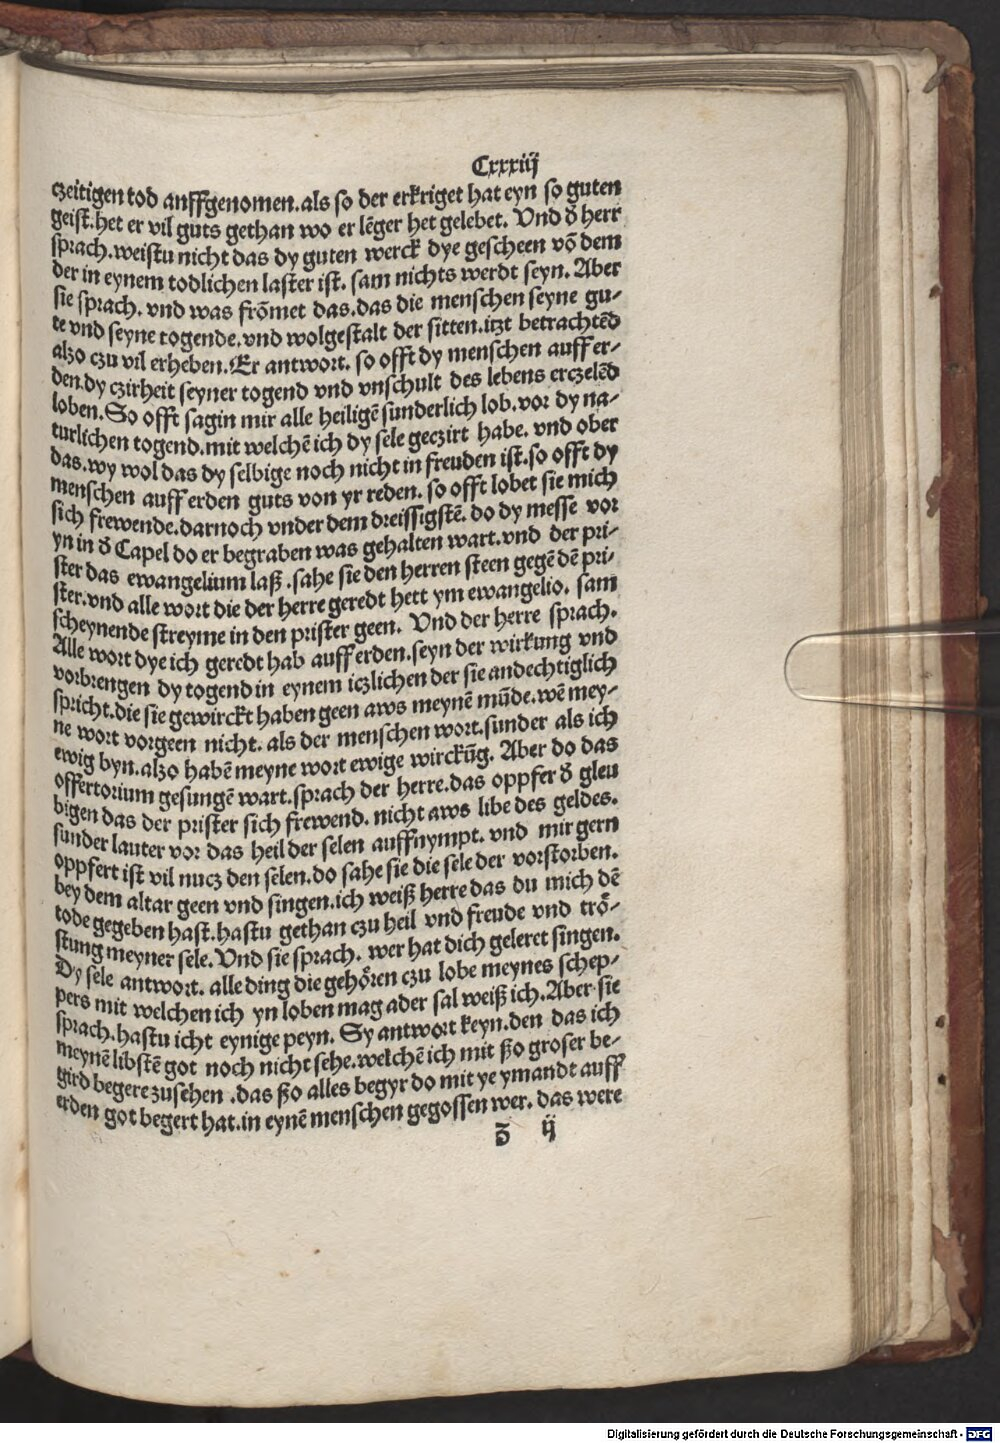 Cxxxiij
czeitigen tod anffgenomen.als so der erkriget hat eyn so guten
geist.het er vil guts gethan wo er lēger het gelebet. Vnd d̄ herr
sprach.weistu nicht das dy guten werck dye gescheen vō dem
der in eynem todlichen laster ist. sam nichts werdt seyn. Aber
sie sprach. vnd was frōmet das.das die menschen seyne gu-
te vnd seyne togende.vnd wolgestalt der sitten.itzt betrachtēd
alzo czu vil erheben.Er antwort. so offt dy menschen auff er-
den.dy czirheit seyner togend vnd vnschult des lebens erczelēd
loben.So offt sagin mir alle heiligē sunderlich lob.vor dy na-
turlichen togend.mit welchē ich dy sele geczirt habe. vnd ober
das.wy wol das dy selbige noch nicht in freuden ist.so offt dy
menschen auff erden guts von yr reden. so offt lobet sie mich
sich frewende.darnoch vnder dem dreissigstē. do dy messe vor
yn in d̄ Capel do er begraben was gehalten wart.vnd der pri-
ster das ewangelium laß .sahe sie den herren steen gegē dē pri-
ster.vnd alle wort die der herre geredt hett ym ewangelio. sam
scheynende streyme in den prister geen. Vnd der herre sprach.
Alle wort dye ich geredt hab auff erden.seyn der wirkung vnd
vorbrengen dy togend in eynem iczlichen der sie andechtiglich
spricht.die sie gewirckt haben geen aws meynē mūde.wē mey-
ne wort vorgeen nicht. als der menschen wort.sunder als ich
ewig byn.alzo habē meyne wort ewige wirckūg. Aber do das
offertorium gesungē wart.sprach der herre.das oppfer d̄ gleu
bigen das der prister sich frewend. nicht aws libe des geldes.
sunder lauter vor das heil der selen auffnympt. vnd mir gern
oppfert ist vil nucz den selen.do sahe sie die sele der vorstorben.
bey dem altar geen vnd singen.ich weiß herre das du mich dē
tode gegeben hast.hastu gethan czu heil vnd freude vnd trö-
stung meyner sele. Vnd sie sprach. wer hat dich geleret singen.
Dy sele antwort. alle ding die gehören czu lobe meynes schep-
pers mit welchen ich yn loben mag ader sal weiß ich.Aber sie
sprach.hastu icht eynige peyn. Sy antwort keyn.den das ich
meynē libstē got noch nicht sehe.welchē ich mit ßo groser be-
gird begere zusehen .das ßo alles begyr do mit ye ymandt auff
erden got begert hat.in eynē menschen gegossen wer. das were
d̄ ij
Digitalisierung gefördert durch die Deutsche Forschungsgemeinschaft - DFG